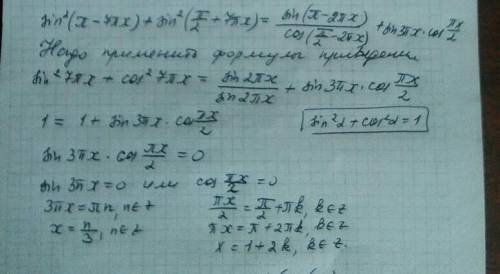 sin²(π-7πx) + sin²(π/2 + 7πx) = sin(π-2πx)/cos(π/2 - 2πx) + sin3πx·cos πx/2
Надо применить формулы приведен.
sin²7πx + cos²7πx = sin2πx/sin2πx + sin3πx·cos πx/2
1 = 1 + sin3πx·cos πx/2 sin²α + cos²α = 1
sin3πx·cos πx/2 = 0
sin3πx = 0 или cos πx/2 = 0
3πx = πn, n∈z πx/2 = π/2 + πk, k∈z
x = n/3, n∈z πx = π + 2πk, k∈z
x = 1 + 2k, k∈z.